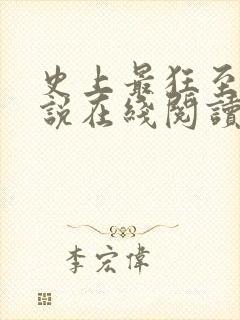 史上最狂至
說在綫閱讀
李宏偉